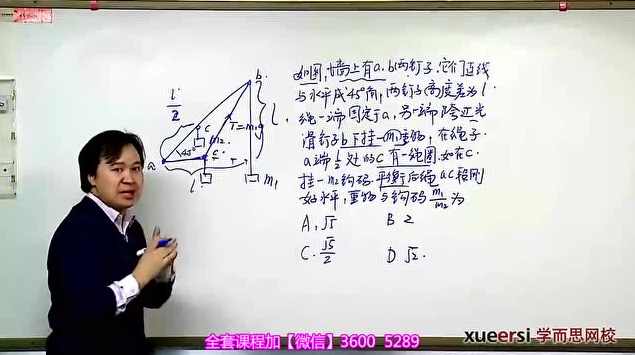 如图,墙上有a、b两钉子,它们连线
与水平成45°角,两钉子高度差为l.
绳一端固定于a,另一端跨过光
滑钉子b下挂一m₁重物,在绳子
a端 l/2 处的C有一绳圈.如在C
挂一m₂钩码.平衡后绳ac段刚
好水平,重物与钩码 m₁/m₂ 为
A. √5 B 2
C. √5/2 D √2.
b
l/2
l
c
T=m₁g
m₂
45°
c'
a
T
l
m₁
全套课程加【微信】3600 5289
xueersi 学而思网校